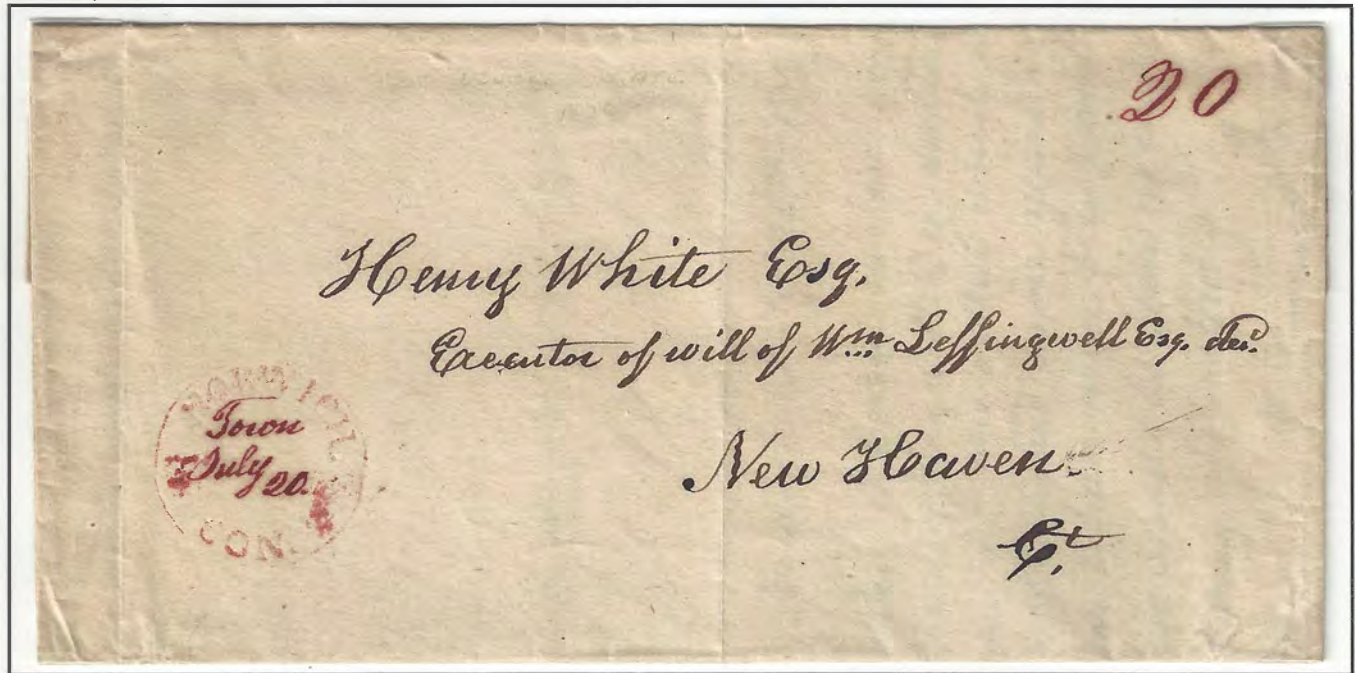 20
Henry White Esq.
Executor of will of Wm Leffingwell Esq. dec.
New Haven
Ct
NORWICH
Town
July 20.
CON